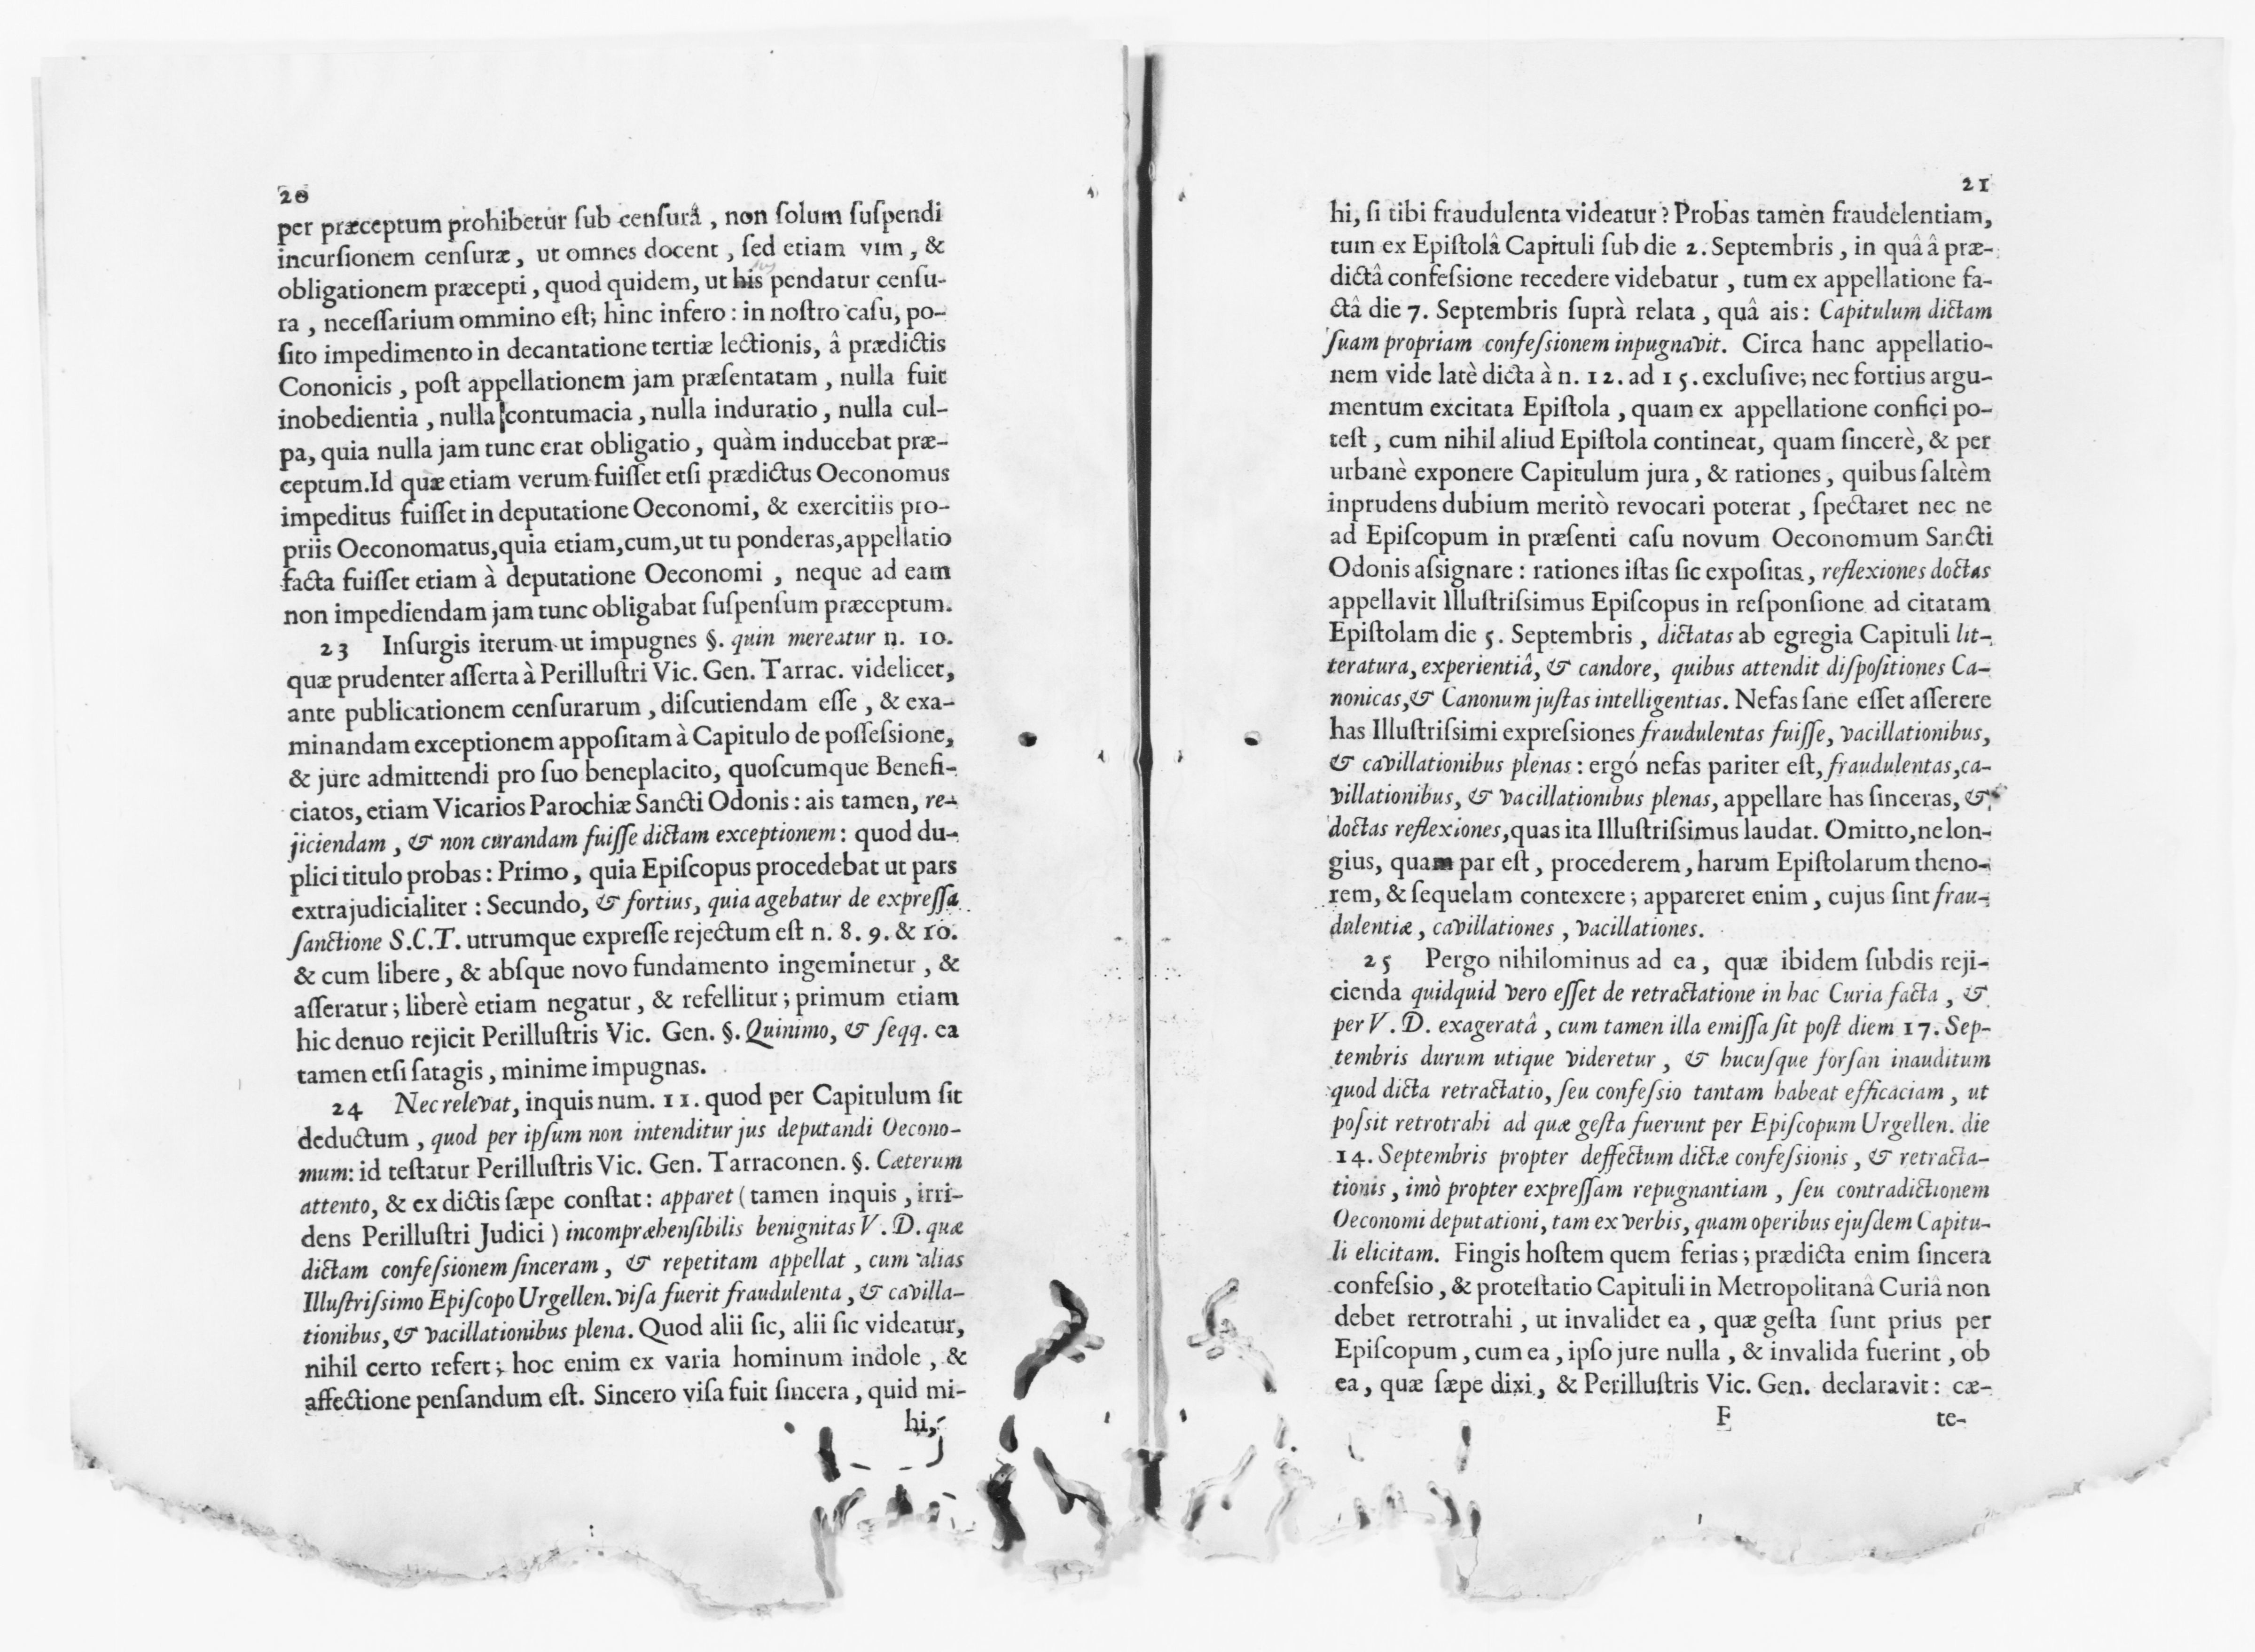 20
per præceptum prohibetur ſub cenſurâ, non ſolum ſuſpendi
incurſionem cenſuræ, ut omnes docent, ſed etiam vim, &
obligationem præcepti, quod quidem, ut his pendatur cenſu-
ra, neceſſarium ommino eſt; hinc infero: in noſtro caſu, po-
ſito impedimento in decantatione tertiæ lectionis, â prædictis
Cononicis, poſt appellationem jam præſentatam, nulla fuit
inobedientia, nulla contumacia, nulla induratio, nulla cul-
pa, quia nulla jam tunc erat obligatio, quàm inducebat præ-
ceptum.Id quæ etiam verum fuiſſet etſi prædictus Oeconomus
impeditus fuiſſet in deputatione Oeconomi, & exercitiis pro-
priis Oeconomatus,quia etiam,cum,ut tu ponderas,appellatio
facta fuiſſet etiam à deputatione Oeconomi, neque ad eam
non impediendam jam tunc obligabat ſuſpenſum præceptum.
23 Inſurgis iterum ut impugnes §. quin mereatur n. 10.
quæ prudenter aſſerta à Perilluſtri Vic. Gen. Tarrac. videlicet,
ante publicationem cenſurarum, diſcutiendam eſſe, & exa-
minandam exceptionem appoſitam à Capitulo de poſſeſsione,
& jure admittendi pro ſuo beneplacito, quoſcumque Benefi-
ciatos, etiam Vicarios Parochiæ Sancti Odonis: ais tamen, re-
jiciendam, & non curandam fuiſſe dictam exceptionem: quod du-
plici titulo probas: Primo, quia Epiſcopus procedebat ut pars
extrajudicialiter: Secundo, & fortius, quia agebatur de expreſſa
ſanctione S.C.T. utrumque expreſſe rejectum eſt n. 8. 9. & 10.
& cum libere, & abſque novo fundamento ingeminetur, &
aſſeratur; liberè etiam negatur, & refellitur; primum etiam
hic denuo rejicit Perilluſtris Vic. Gen. §. Quinimo, & ſeqq. ea
tamen etſi ſatagis, minime impugnas.
24 Nec relevat, inquis num. 11. quod per Capitulum ſit
deductum, quod per ipſum non intenditur jus deputandi Oecono-
mum: id teſtatur Perilluſtris Vic. Gen. Tarraconen. §. Cæterum
attento, & ex dictis ſæpe conſtat: apparet (tamen inquis, irri-
dens Perilluſtri Judici) incompræhenſibilis benignitas V. D. quæ
dictam confeſsionem ſinceram, & repetitam appellat, cum alias
Illuſtriſsimo Epiſcopo Urgellen. viſa fuerit fraudulenta, & cavilla-
tionibus, & vacillationibus plena. Quod alii ſic, alii ſic videatur,
nihil certo refert; hoc enim ex varia hominum indole, &
affectione penſandum eſt. Sincero viſa fuit ſincera, quid mi-
hi,
21
hi, ſi tibi fraudulenta videatur? Probas tamèn fraudelentiam,
tum ex Epiſtolâ Capituli ſub die 2. Septembris, in quâ â præ-
dictâ confeſsione recedere videbatur, tum ex appellatione fa-
ctâ die 7. Septembris ſuprà relata, quâ ais: Capitulum dictam
ſuam propriam confeſsionem inpugnavit. Circa hanc appellatio-
nem vide latè dicta à n. 12. ad 15. excluſive; nec fortius argu-
mentum excitata Epiſtola, quam ex appellatione confici po-
teſt, cum nihil aliud Epiſtola contineat, quam ſincerè, & per
urbanè exponere Capitulum jura, & rationes, quibus ſaltèm
inprudens dubium meritò revocari poterat, ſpectaret nec ne
ad Epiſcopum in præſenti caſu novum Oeconomum Sancti
Odonis aſsignare: rationes iſtas ſic expoſitas, reflexiones doctas
appellavit Illuſtriſsimus Epiſcopus in reſponſione ad citatam
Epiſtolam die 5. Septembris, dictatas ab egregia Capituli lit-
teratura, experientiâ, & candore, quibus attendit diſpoſitiones Ca-
nonicas,& Canonum juſtas intelligentias. Nefas ſane eſſet aſſerere
has Illuſtriſsimi expreſsiones fraudulentas fuiſſe, vacillationibus,
& cavillationibus plenas: ergó nefas pariter eſt, fraudulentas,ca-
villationibus, & vacillationibus plenas, appellare has ſinceras, &
doctas reflexiones,quas ita Illuſtriſsimus laudat. Omitto,ne lon-
gius, quam par eſt, procederem, harum Epiſtolarum theno-
rem, & ſequelam contexere; appareret enim, cujus ſint frau-
dulentiæ, cavillationes, vacillationes.
25 Pergo nihilominus ad ea, quæ ibidem ſubdis reji-
cienda quidquid vero eſſet de retractatione in hac Curia facta, &
per V. D. exageratâ, cum tamen illa emiſſa ſit poſt diem 17. Sep-
tembris durum utique videretur, & hucuſque forſan inauditum
quod dicta retractatio, ſeu confeſsio tantam habeat efficaciam, ut
poſsit retrotrahi ad quæ geſta fuerunt per Epiſcopum Urgellen. die
14. Septembris propter deffectum dictæ confeſsionis, & retracta-
tionis, imò propter expreſſam repugnantiam, ſeu contradictionem
Oeconomi deputationi, tam ex verbis, quam operibus ejuſdem Capitu-
li elicitam. Fingis hoſtem quem ferias; prædicta enim ſincera
confeſsio, & proteſtatio Capituli in Metropolitanâ Curiâ non
debet retrotrahi, ut invalidet ea, quæ geſta ſunt prius per
Epiſcopum, cum ea, ipſo jure nulla, & invalida fuerint, ob
ea, quæ ſæpe dixi, & Perilluſtris Vic. Gen. declaravit: cæ-
F te-